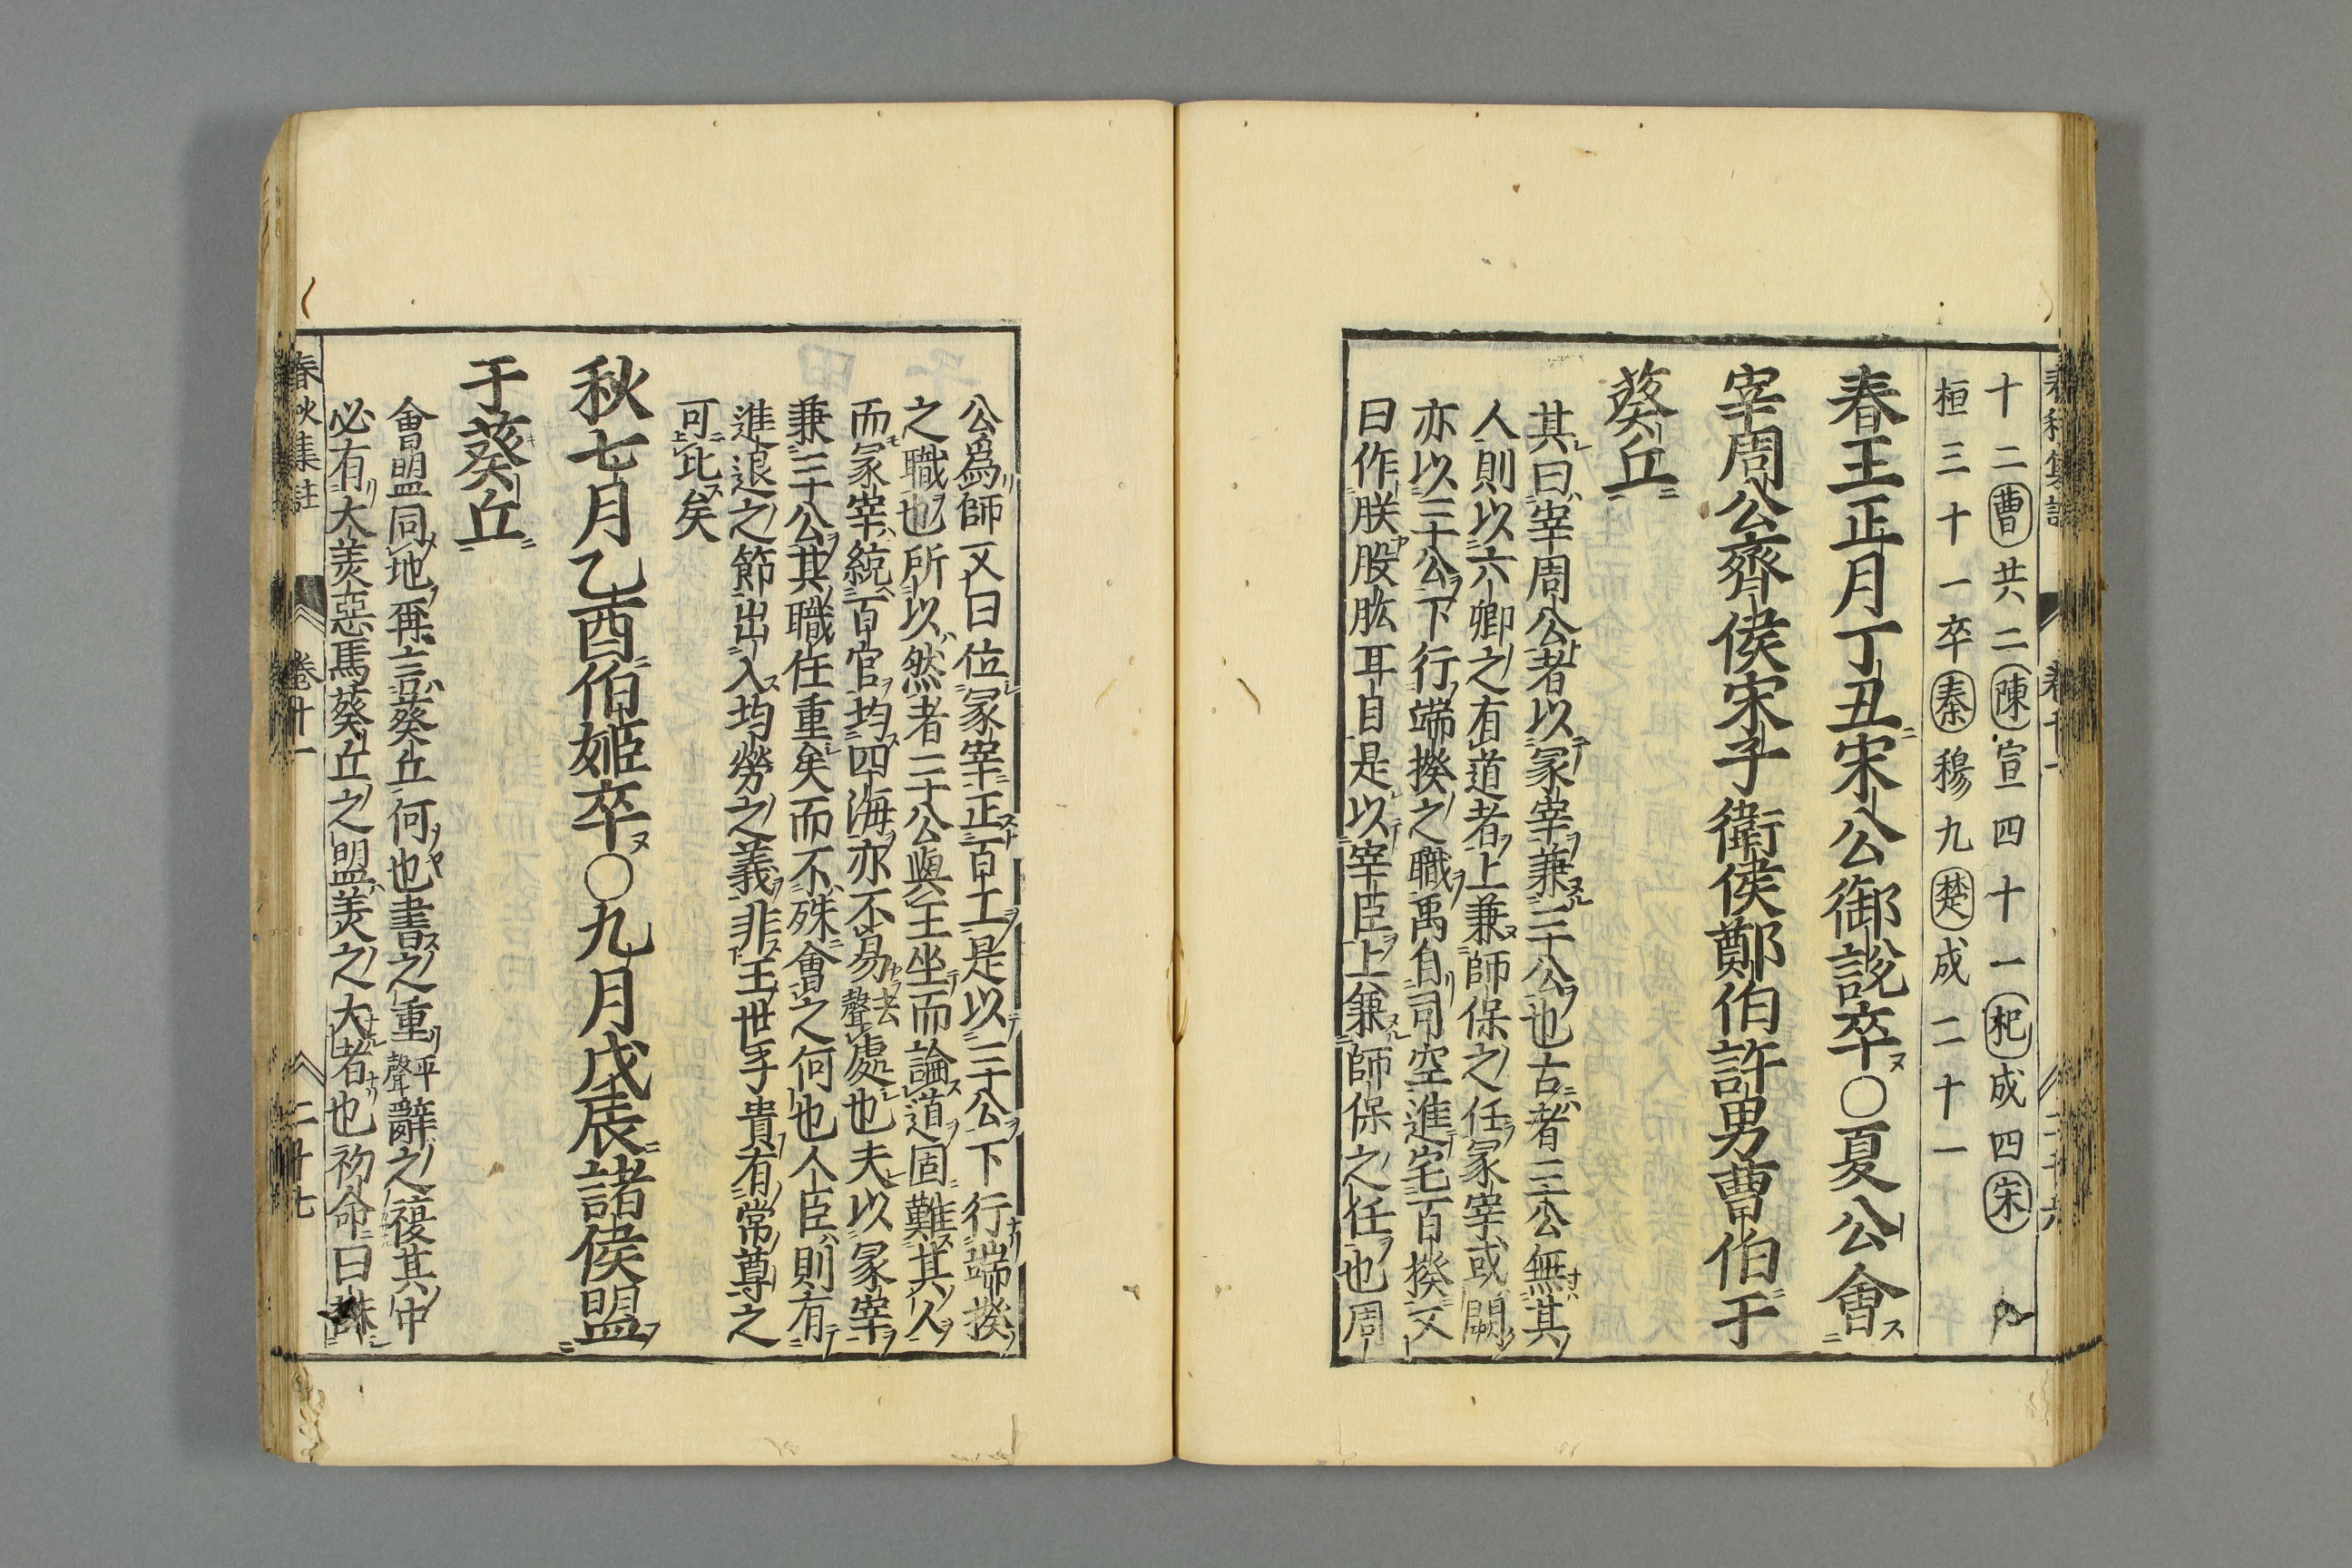 十二曹共二陳宣四十一杞成四宋
桓三十一卒秦穆九楚成二十一
春王正月丁丑宋公御說卒〇夏公會
宰周公齊侯宋子衛侯鄭伯許男曹伯于
葵丘
其曰宰周公者以冢宰兼三公也古者三公無其
人則以六卿之有道者上兼師保之任冢宰或闕
亦以三公下行端揆之職禹自司空進宅百揆又
曰作朕股肱耳目是以宰臣上兼師保之任也周
公爲師又曰位冢宰正百工是以三公下行端揆
之職也所以然者三公與王坐而論道固難其人
而冢宰統百官均四海亦不易去聲處也夫以冢宰
兼三公其職任重矣而不殊會之何也人臣則有
進退之節出入均勞之義非王世子貴有常尊之
可比矣
秋七月乙酉伯姬卒〇九月戊辰諸侯盟
于葵丘
會盟同地再言葵丘何也書之重平聲辭之複其中
必有大美惡焉葵丘之盟美之大者也初命曰誅
春秋集註 卷廿一 二廿七